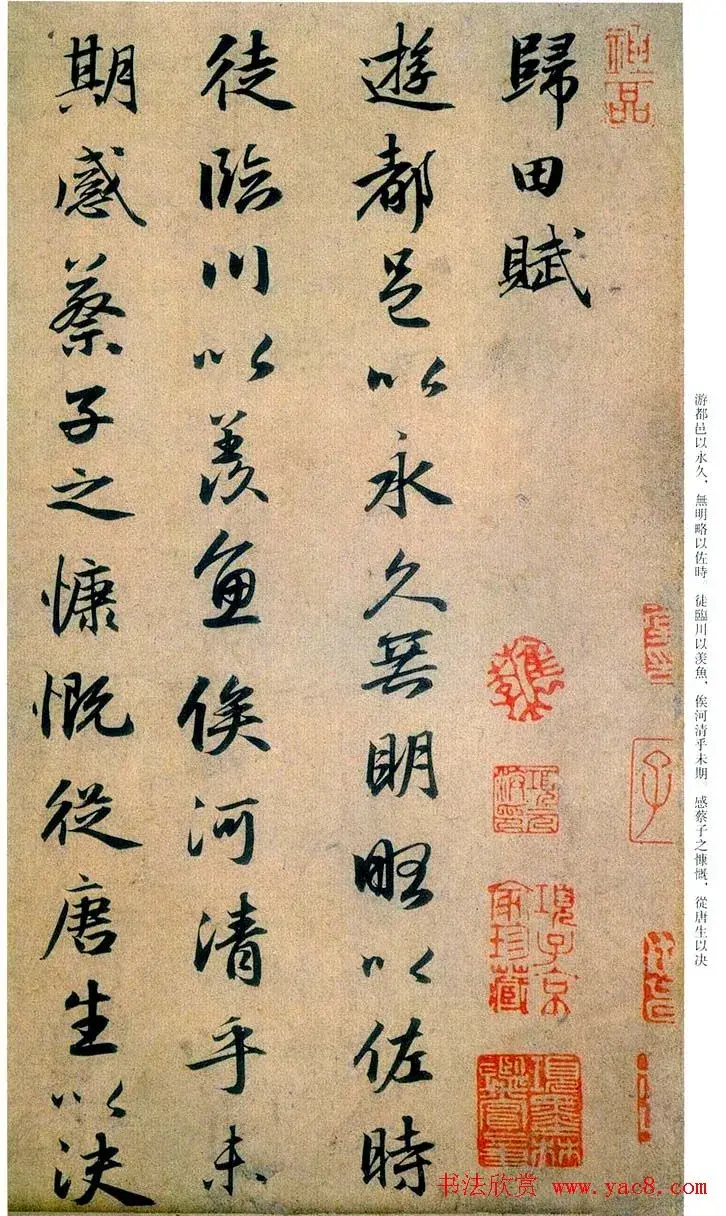 神品
歸田賦
項子京家珍藏
項墨林鑑賞章
遊都邑以永久無明略以佐時
徒臨川以羨魚俟河清乎未
期感蔡子之慷慨從唐生以決
游都邑以永久，無明略以佐時　徒臨川以羨魚，俟河清乎未期　感蔡子之慷慨，從唐生以决
书法欣赏 www.yac8.com